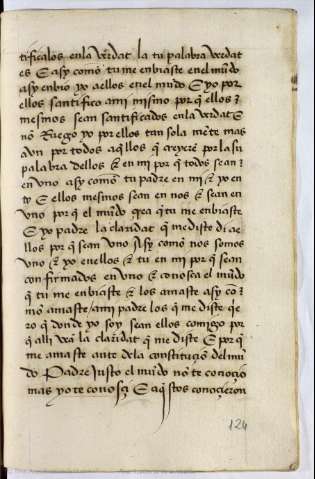 tificalos enla v̄dat la tu palabra verdat
es E asy como tu me enbiaste enel mūdo
asy enbio yo aellos enel mūdo E yo por
ellos santifico ami mismo por q̄ ellos
mesmos sean santificados enla verdat E
nō Ruego yo por ellos tan sola mēte mas
avn por todos aq̄llos q̄ creyerē por la su
palabra dellos E en mi por q̄ todos sean
en vno asy como tu padre en mi E yo en
ty E ellos mesmos sean en nos E sean en
vno por q̄ el mūdo crea q̄ tu me enbiaste
E yo padre la claridat q̄ me diste di ae
llos por q̄ sean vno Asy como nos somos
vno E yo enellos E tu en mi por q̄ sean
confirmados en vno E conosca el mūdo
q̄ tu me enbiaste E los amaste asy co
mo amaste / ami padre los q̄ me diste q̄e
ro q̄ donde yo soy sean ellos comigo por
q̄ alli veā la claridat q̄ me diste E por q̄
me amaste ante dela constituciō del mū
do Padre Justo el mūdo nō te conocio
mas yo te conosci E aq̄stos conocieron
124